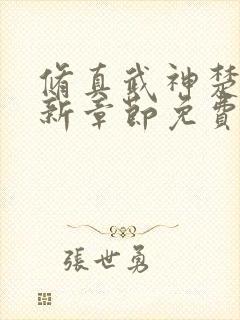 脩真武神楚
新章節免費
張世勇